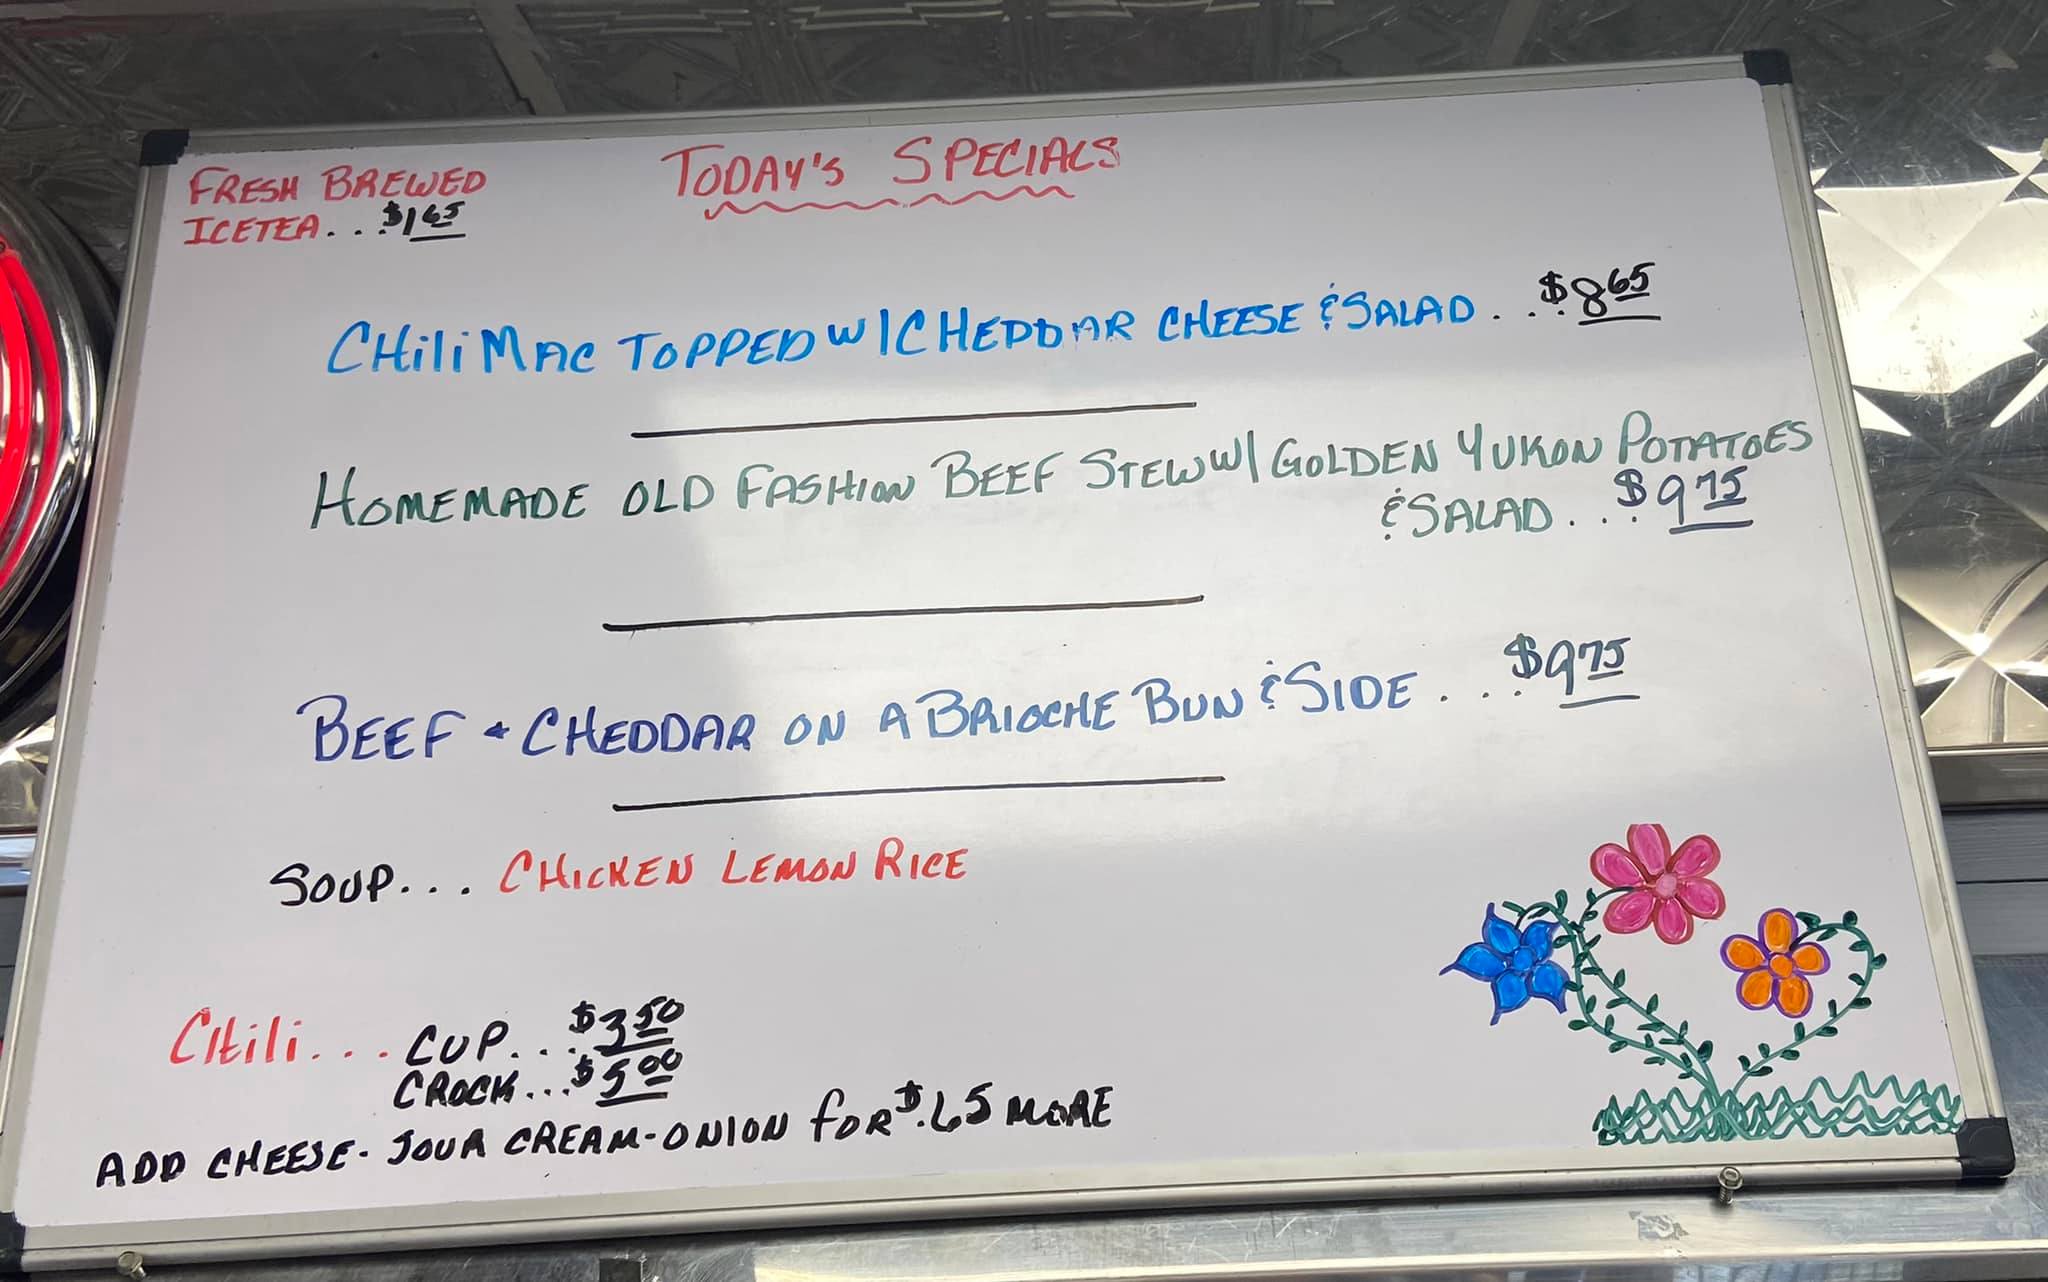 FRESH BREWED
ICETEA...$1.65
TODAY'S SPECIALS
CHili MAC TOPPED W/CHEDDAR CHEESE & SALAD...$8.65
HOMEMADE OLD FASHION BEEF STEW W/ GOLDEN YUKON POTATOES
& SALAD...$9.75
BEEF & CHEDDAR ON A BRIOCHE BUN & SIDE...$9.75
SOUP... CHICKEN LEMON RICE
CHili... CUP...$3.50
CROCK...$5.00
ADD CHEESE-SOUR CREAM-ONION FOR $.65 MORE